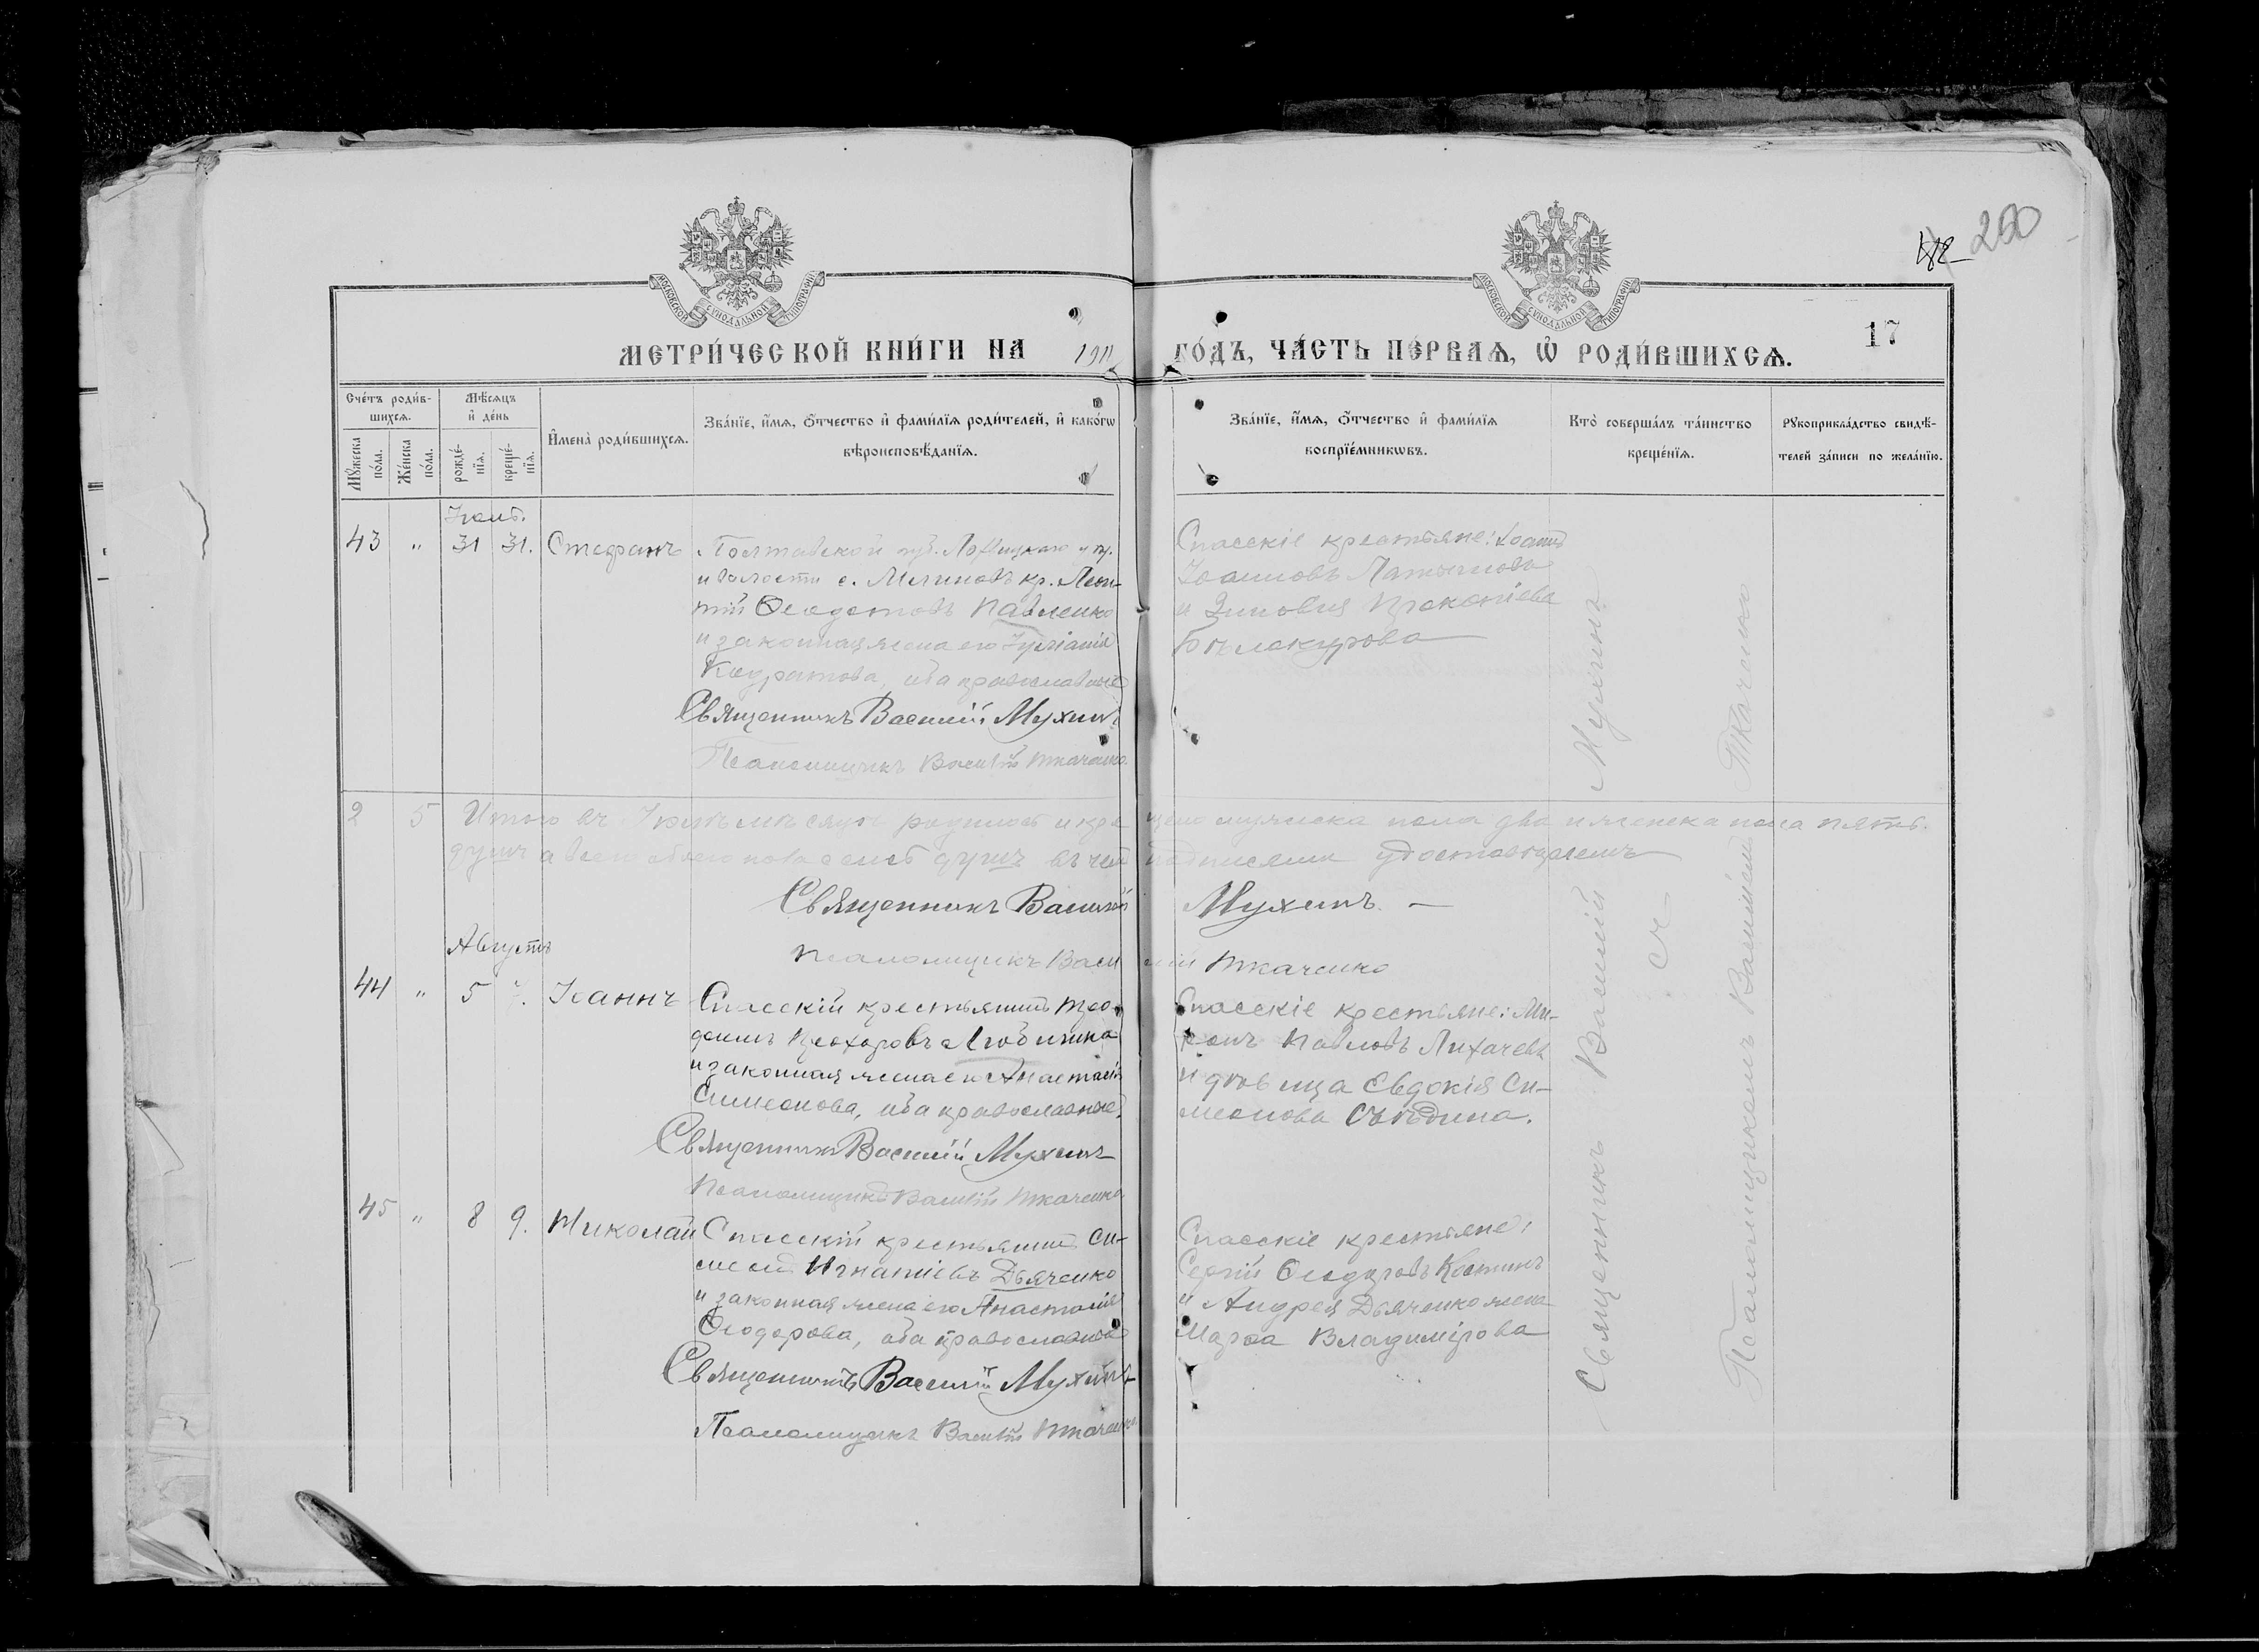 250
МОСКОВСКОЙ СѴНОДАЛЬНОЙ ТИПОГРАФІИ
МОСКОВСКОЙ СѴНОДАЛЬНОЙ ТИПОГРАФІИ
МЕТРИ́ЧЕСКОЙ КНИ́ГИ НА 1911 ГО́ДЪ, ЧА́СТЬ ПЕ́РВАѦ, Ѡ҆ РОДИ́ВШИХСѦ.
17
Сче́тъ роди́в-
шихсѧ.
Мѣ́сѧцъ
и҆ де́нь
Мꙋ́жеска
по́ла.
Же́нска
по́ла.
рожде́-
нїѧ.
креще́-
нїѧ.
И҆мена̀ роди́вшихсѧ.
Зва́нїе, и҆́мѧ, ѻ҆́тчество и҆ фами́лїѧ роди́телей, и҆ како́гѡ
вѣроисповѣ́данїѧ.
Зва́нїе, и҆́мѧ, ѻ҆́тчество и҆ фами́лїѧ
воспрїе́мникѡвъ.
Кто̀ соверша́лъ та́инство
креще́нїѧ.
Рꙋкоприкла́дство свидѣ́-
телей за́писи по жела́нїю.
43 " 31 31. Стефанъ
Полтавской губ. Лохвицкаго у.
и волости с. Млиновъ кр. Леон-
тій Ѳеодотовъ Павленко
и законная жена его Іуліанія
Кодратова, оба православные
Священникъ Василій Мухинъ
Псаломщикъ Василій Ткаченко
Спасскіе крестьяне: Іоаннъ
Іоанновъ
и Зиновія Прокопіева
Бѣлокурова
2 5 Итого въ мѣсяцѣ родилось и крещено мужеска пола два и женска пола пять
душъ а всего обоего пола семь душъ въ чемъ подписями удостовѣряемъ
Священникъ Василій Мухинъ. —
Псаломщикъ Василій Ткаченко
Августъ
44 " 5 Іоаннъ
Спасскій крестьянинъ
Прохоровъ
и законная жена его Анастасія
Симеонова, оба православные.
Священникъ Василій Мухинъ
Псаломщикъ Василій Ткаченко
Спасскіе крестьяне: Ми-
Павловъ Лихачевъ
и дѣвица Евдокія Си-
меонова
45 " 8 9. Николай
Спасскій крестьянинъ Си-
меонъ Игнатіевъ Дьяченко
и законная жена его Анастасія
Ѳеодорова, оба православные
Священникъ Василій Мухинъ
Псаломщикъ Василій Ткаченко
Спасскіе крестьяне:
Сергій Ѳеодоровъ Костинъ
и Андрея Дьяченко жена
Марѳа Владимірова
Священникъ Василій Мухинъ
съ
Псаломщикомъ Василіемъ Ткаченко